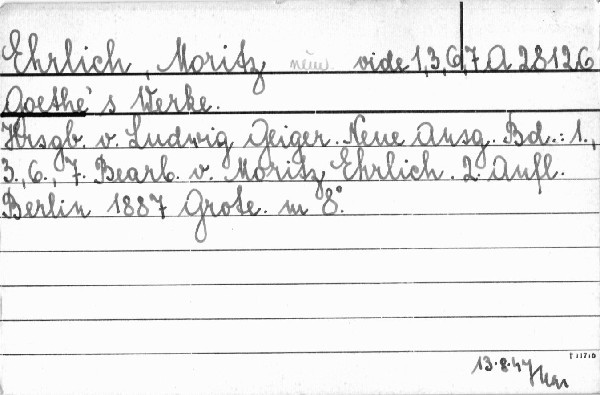 Ehrlich, Moritz vide 1,3,6,7 A 28126
Goethe's Werke.
Hrsgb. v. Ludwig Geiger. Neue Ausg. Bd.: 1.,
3., 6., 7. Bearb. v. Moritz Ehrlich. 2. Aufl.
Berlin 1887 Grote. m 8°.
13.8.47